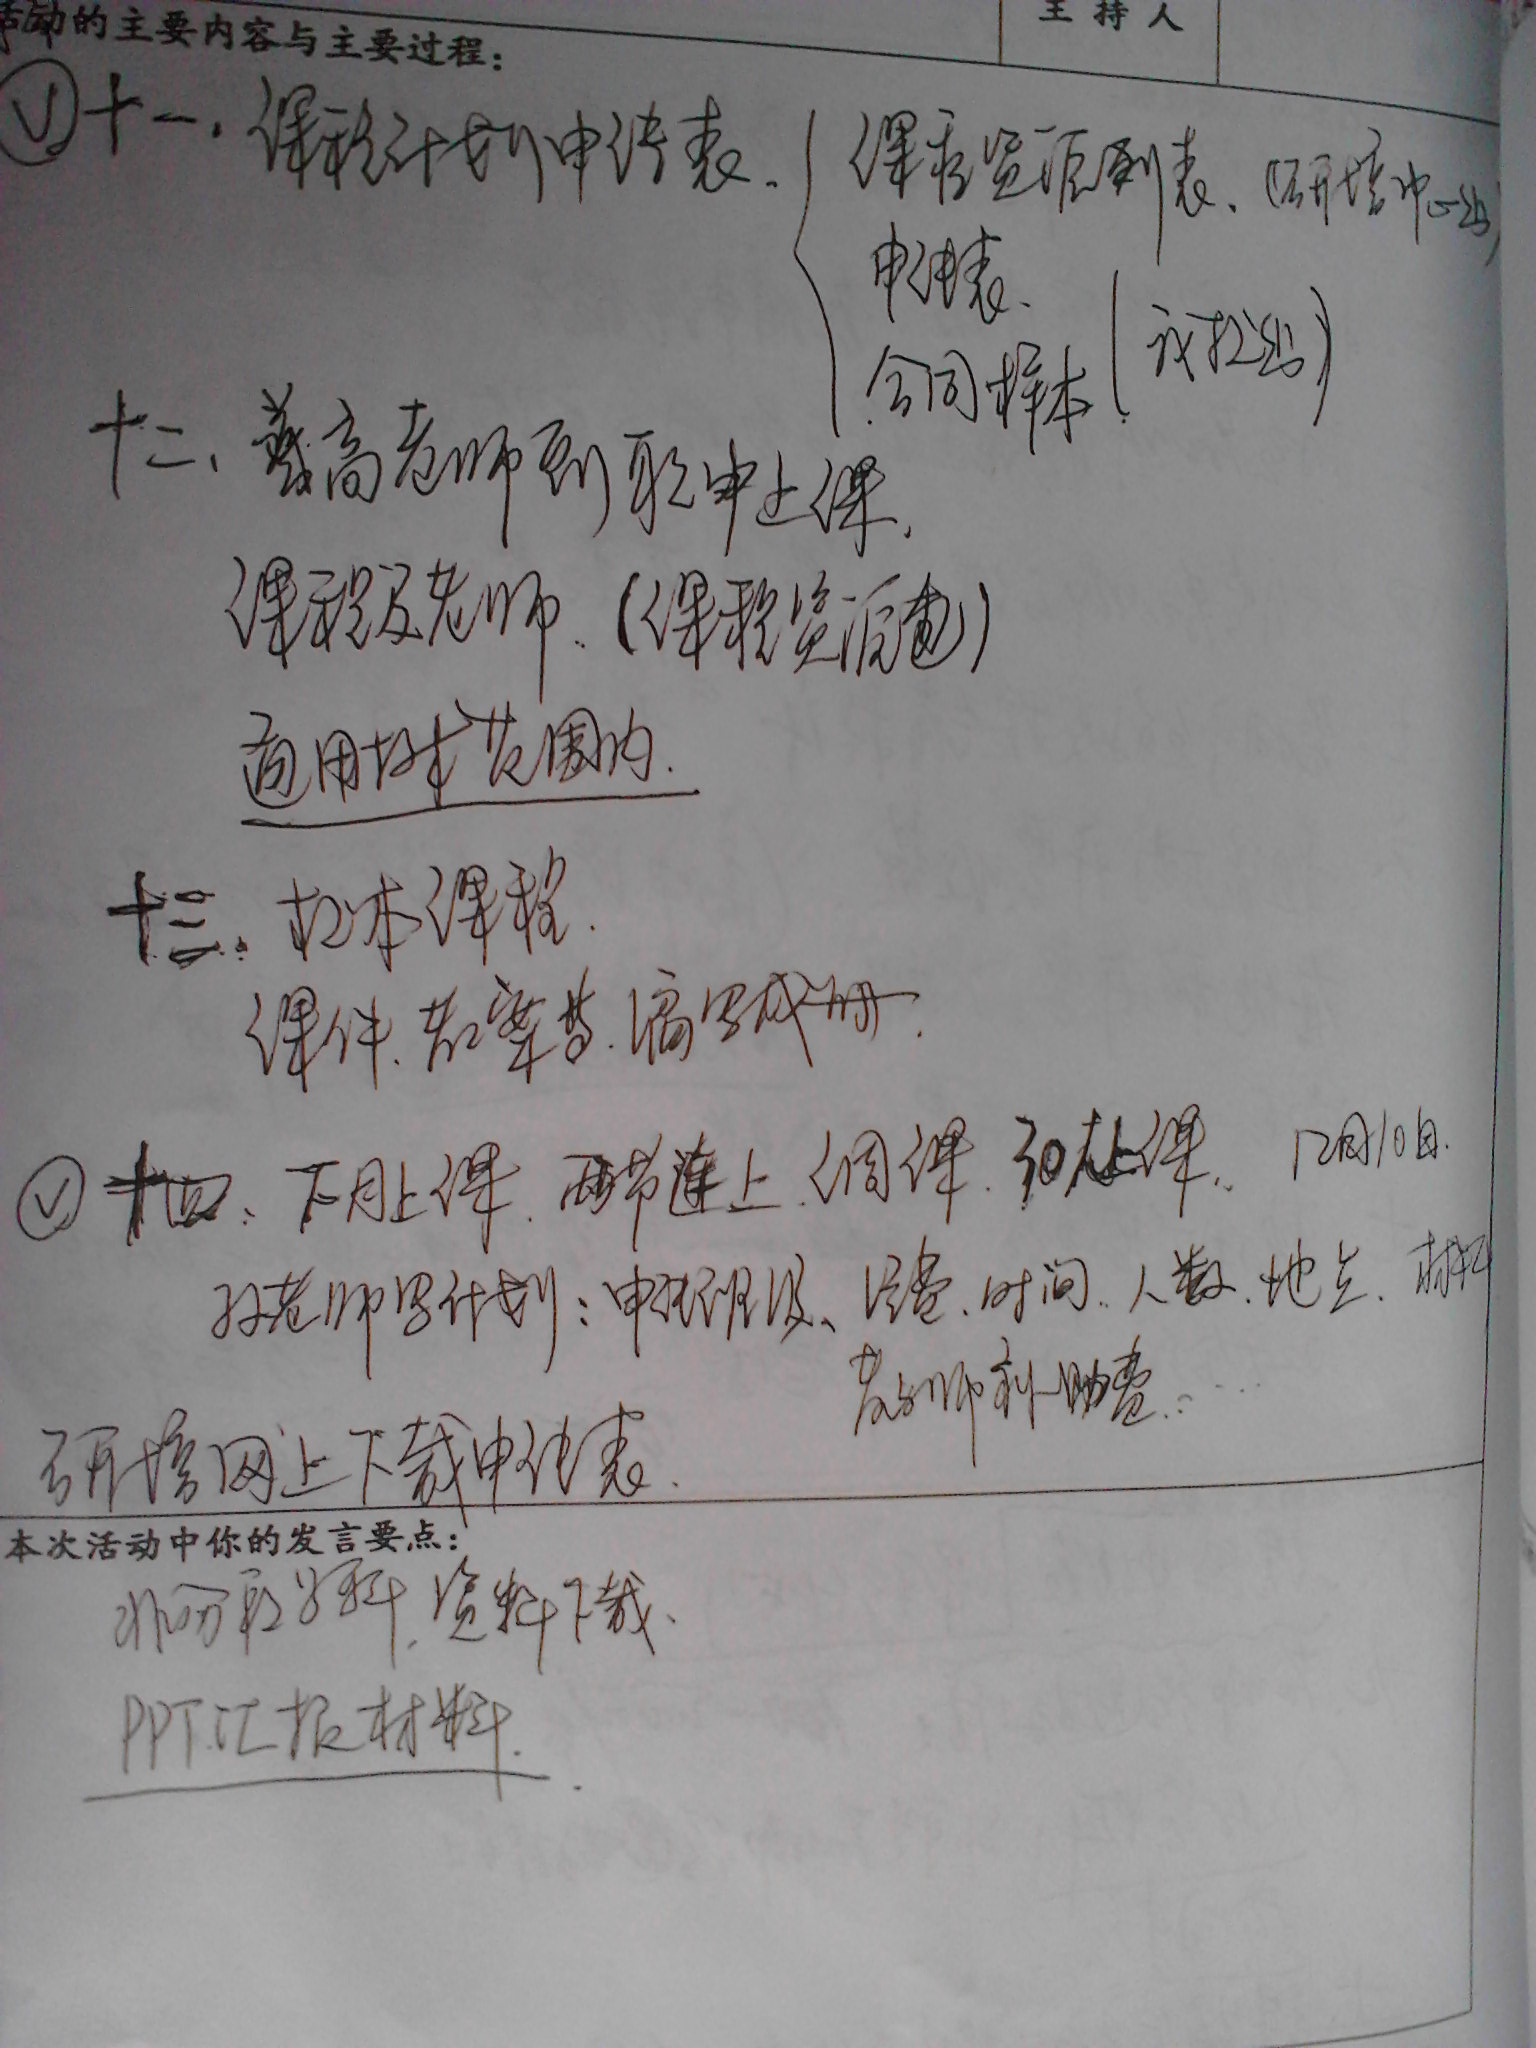 活动的主要内容与主要过程：
主持人
十一、课程计划申请表、
课程资源列表、(研培中心出)
申请表、
合同样本(议拉出)
十二、高老师到职中上课、
课程及老师、(课程资源包)
适用教材范围内.
十三、校本课程.
课件、教案等、编写成册.
十四、下月上课、两节连上、调课、30人上课、12月10日.
老师写计划：申报班级、经费、时间、人数、地点、材料
教师补助费……
研培网上下载申请表.
本次活动中你的发言要点：
学科、资料下载、
PPT汇报材料.